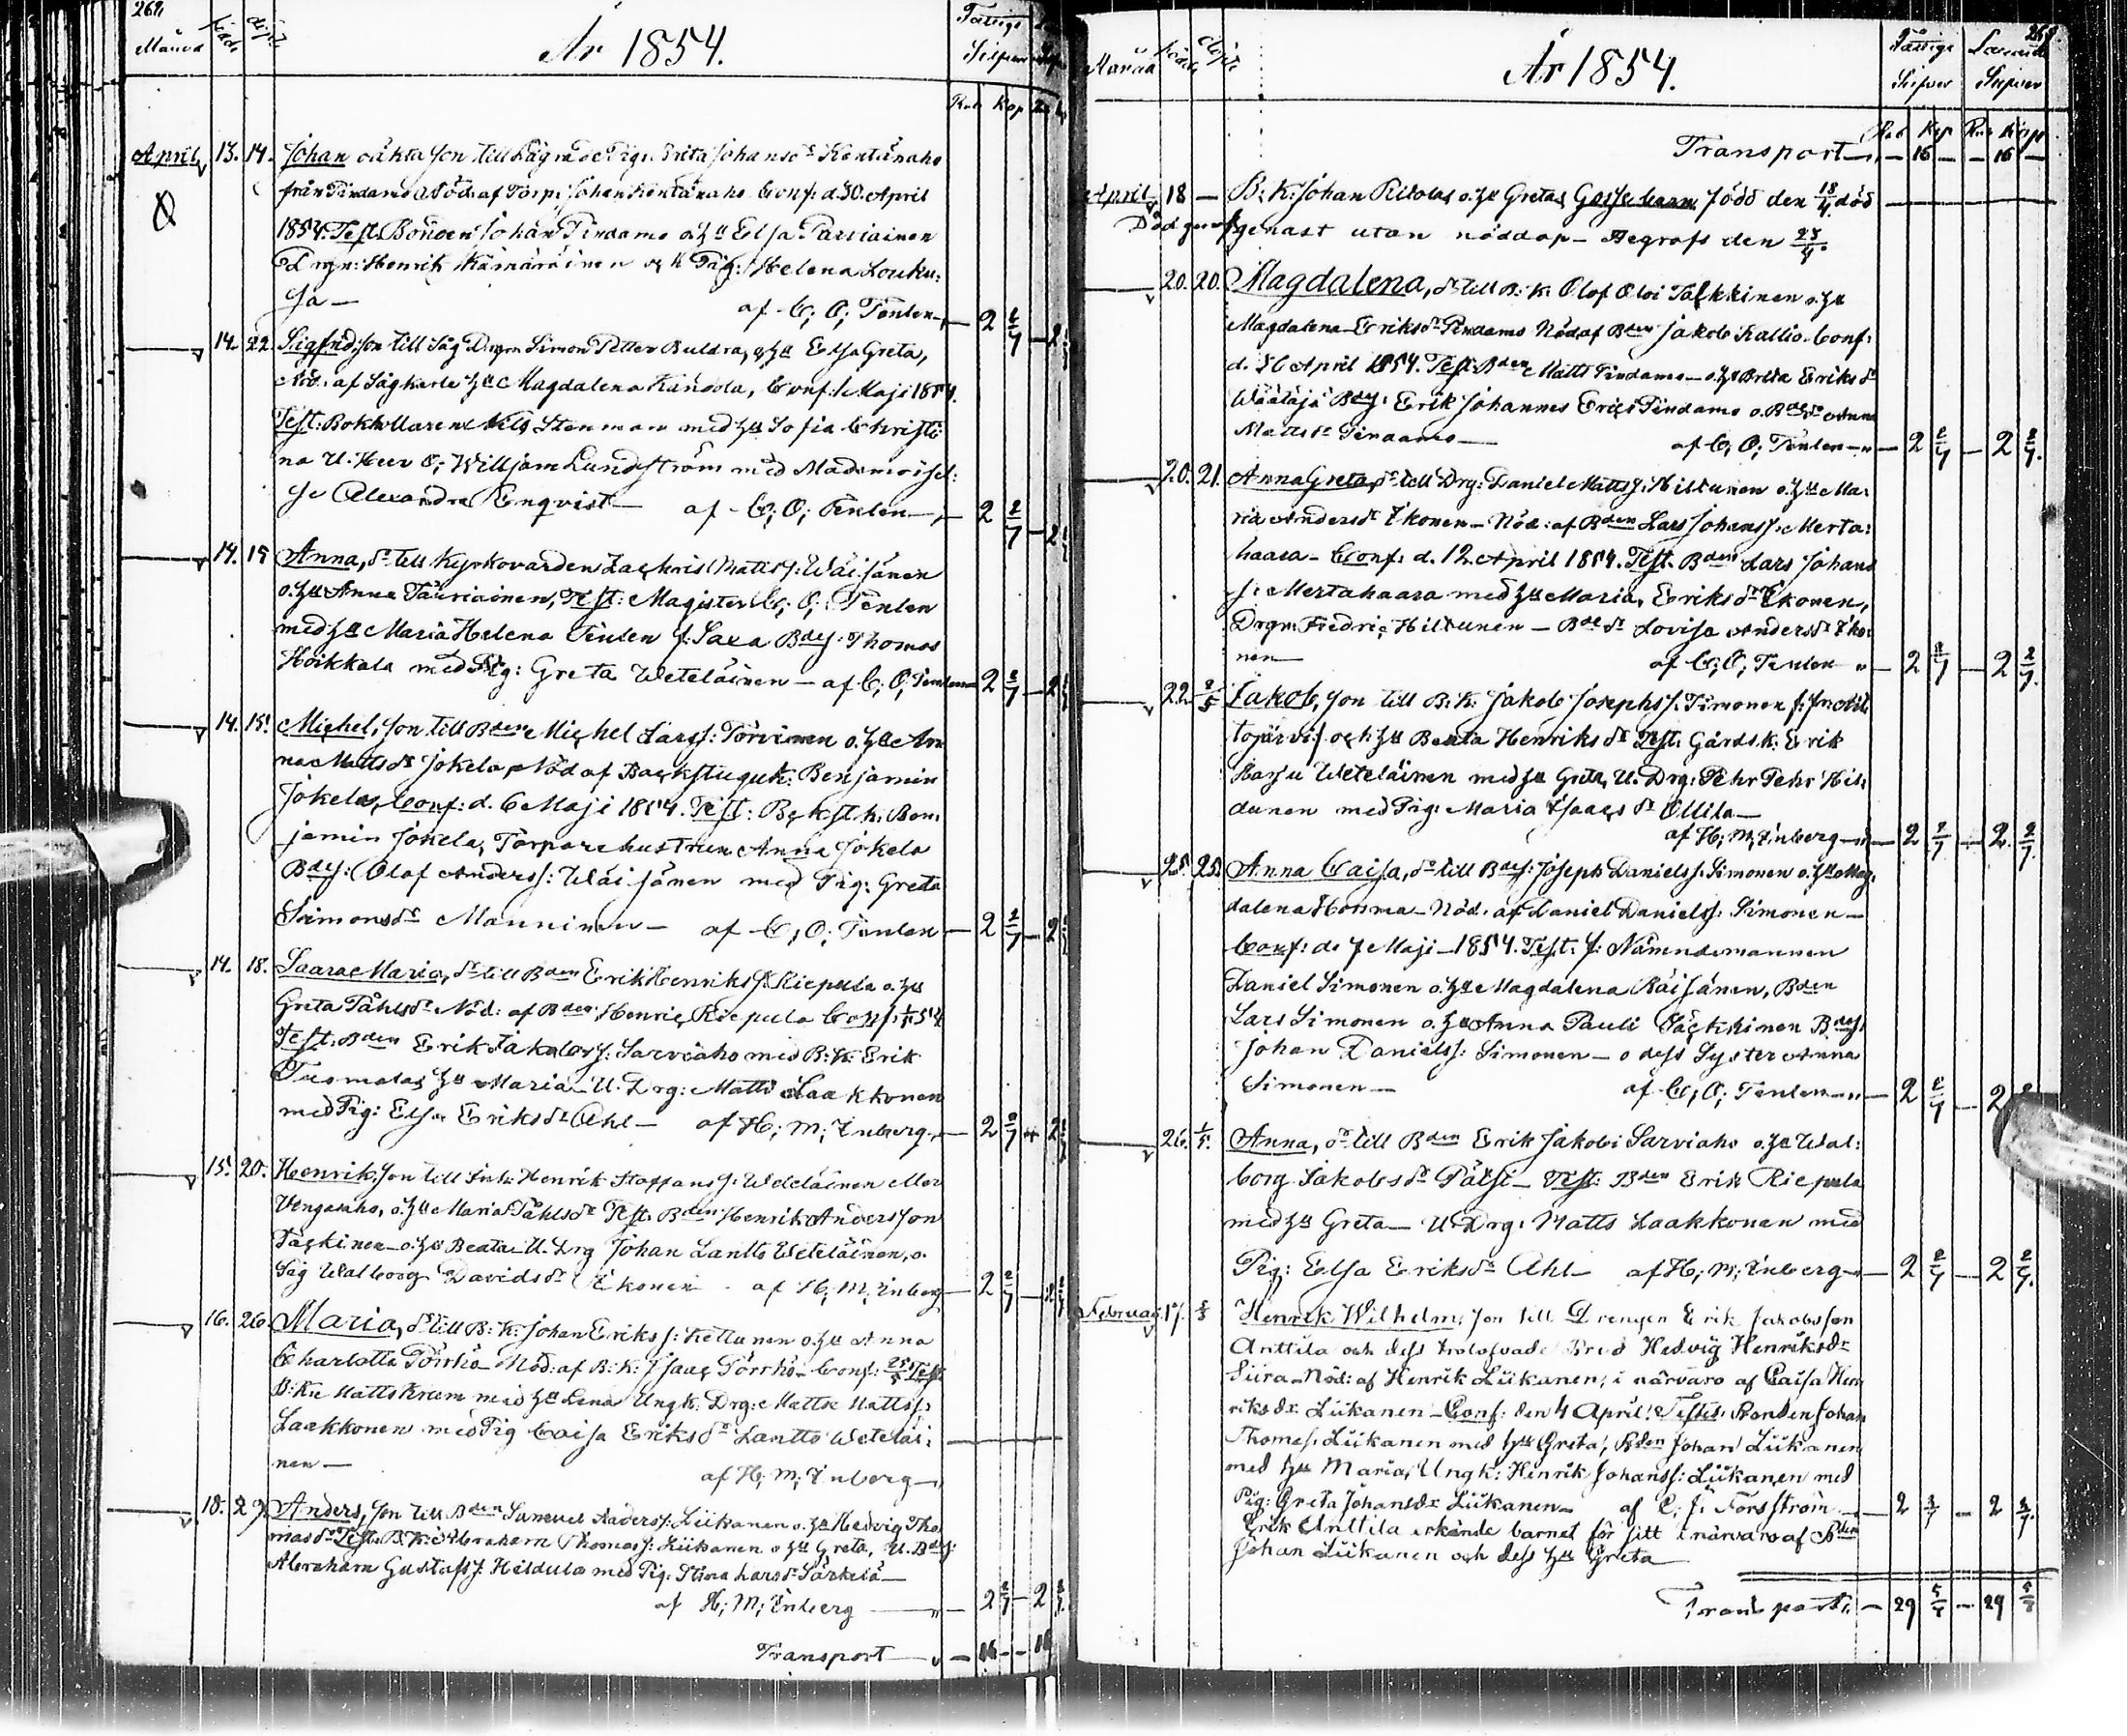 262.
Månad född döpt
År 1854.
Fattige Silfver
Rub Kop
April 13. 14. Johan oäkta son till Lägrade Pig. Brita Johansdr Kontänaho
från Pirdamo Nöd. af Torp. Johan Kontänaho Conf: d. 30. April
1854. Test. Bonden Johan Pirdamo o. hu Elsa Parviainen
Drgn: Henrik Kämäräinen och Pig: Helena Louku:
sa —
af C; O; Tenlen — 2 2/7 — 2
14. 22. Sigfrid, son till Såg Drgn Simon Petter Buldra, o. hu Elsa Greta,
Nöd. af Sågkarls hu Magdalena Kandola, Conf: Maji 1854.
Test: Bokhållaren Nils Stenman med hu Sofia Christi
na U. Herr O; Willjam Lundström med Mademoisel:
se Alexandra Enqvist — af C; O; Tenlen — 2 2/7 — 2
14. 15 Anna, dr till Kyrkovärden Zachris Matts s: Wäisänen
o. hu Anna Tauriainen, Test: Magister C; O; Tenlen
med hu Maria Helena Tenlen f: Saxa Bdes: Thomas
Hoikkala med Pig: Greta Weteläinen — af C; O; Tenlen — 2 2/7 — 2
14. 15. Michel, son till Bden Michel Larss: Törvinen o. hu An
na Mattsdr Jokela, Nöd af Backstuguk: Benjamin
Jokela, Conf: d. 6 Maji 1854. Test: Bckst. k: Ben:
jamin Jokela, Torpare hustrun Anna Jokela
Bdes: Olof Anderss: Wäisänen med Pig: Greta
Simonsdr Manninen — af C; O; Tenlen — 2 2/7 — 2
14. 18. Saara Maria, dr till Bden Erik Henrikss: Riepula o. hu
Greta Påhlsdr Nöd: af Bden Henric Riepula Conf:
Test. Bden Erik Jakobs s: Sarviaho med B: K: Erik
Tuomalas hu Maria — U. Drg: Matts Laakkonen
med Pig: Elsa Eriksdr Ahl — af H; M; Enberg — 2 2/7 — 2
15. 20. Henrik, son till Inh: Henrik Staffans s: Weteläinen
Vengasaho, o. hu Maria Påhlsdr Test. Bden Henrik Andersson
Täckinen — o. hu Beata — U. Drg Johan Lantto Weteläinen, o.
Pig Walborg Davidsdr Ikonen — af H; M; Enberg — 2 2/7 — 2
16. 26. Maria, dr till B: K: Johan Eriks s: Kettunen o. hu Anna
Charlotta Törrhö — Nöd: af B: K: Isaac Törrhö — Conf: Test.
B: K: Matts Kram med hu Lena Ungk. Drg: Matts Matts s:
Laakkonen med Pig Caisa Eriksdr Lantto Wetelai:
nen —
af H; M; Enberg —
18. 29. Anders, son till Bden Samuel Anders s: Liikanen o. hu Hedvig Tho
masdr Test. B: K: Abraham Thomas s: Liikanen o hu Greta, U. Bdes:
Abraham Gustafs s: Heldula med Pig. Stina Larsdr Särkelä —
af H; M; Enberg — 2 2/7 — 2
Transport — 16 — 16
Månad född döpt
År 1854.
Fattige Silfver
Silfver
Rub Kop Rub Kop
Transport — 16 — 16 —
April 18 — B: K: Johan Pittolas o. hu Gretas Gossebarn född den 18/4 död
Död genast utan nöddop — Begrofs den 23/4.
20. 20. Magdalena, dr till B: K: Olof Oloi Täckkinen o. hu
Magdalena Eriksdr Pirdamo Nöd af Bden Jakob Kallio. Conf:
d. 16 April 1854. Test: Bden Matts Pirdamo — o. hu Brita Eriksdr
Wäätäjä Bdes: Erik Johannes Erici Pirdamo o. Bdes dr Anna
Mattsdr Pirdamo — af C; O; Tenlen — 2 2/7 — 2 2/7.
20. 21. Anna Greta, dr till Drg: Daniel Matts s: Hiltunen o. hu Ma:
ria Andersdr Ikonen — Nöd: af Bden Lars Johans s: Merta:
haara — Conf: d. 12 April 1854. Test. Bden Lars Johans
s: Mertahaara med hu Maria, Eriksdr Ikonen,
Drgn: Fredric Hiltunen — Bde dr Lovisa Andersdr Iko:
nen — af C; O; Tenlen — 2 2/7 — 2 2/7.
22. 2/5 Jakob, son till B: K: Jakob Josephs s: Simonen f: fr.
tojärvi och hu Beata Henriksdr Test: Gårds. k: Erik
Karju Weteläinen med hu Greta, U. Drg: Pehr Pehr Hil:
dunen med Pig: Maria Isaacsdr Ollila —
af H; M; Enberg — 2 2/7 — 2 2/7.
25. 25. Anna Caisa, dr till Bdes: Joseph Daniels s: Simonen o. hu Mag:
dalena Honma — Nöd. af Daniel Daniels s: Simonen —
Conf: d. 7 Maji — 1854. Test: f: Nämndemannen
Daniel Simonen o. hu Magdalena Räisänen, Bden
Lars Simonen o. hu Anna Pauli Täckkinen Bdes:
Johan Daniels s: Simonen — o dess Syster Anna
Simonen — af C; O; Tenlen — 2 2/7 — 2
26. 1/5. Anna, dr till Bden Erik Jakobi Sarviaho o. hu Wal:
borg Jakobsdr Pätsi — Test: Bden Erik Riepula
med hu Greta — U. Drg: Matts Laakkonen med
Pig: Elsa Eriksdr Ahl — af H; M; Enberg — 2 2/7 — 2 2/7.
Februari 17. Henrik Wilhelm, son till Drengen Erik Jakobsson
Anttila och dess trolofvade Brud Hedvig Henriksdr
Siira — Nöd: af Henrik Liikanen, i närvaro af Caisa Hen
riksdr Liikanen — Conf: den 4 April. Testes: Bonden Johan
Thomas s. Liikanen med hu Greta, Bden Johan Liikanen
med hu Maria, Ungk: Henrik Johans s: Liikanen med
Pig: Greta Johansdr Liikanen — af C. J: Forsström — 2 2/7 — 2 2/7.
Erik Anttila erkände barnet för sitt i närvaro af Bden
Johan Liikanen och dess hu Greta —
Transport — 29 5/7 — 29 5/7